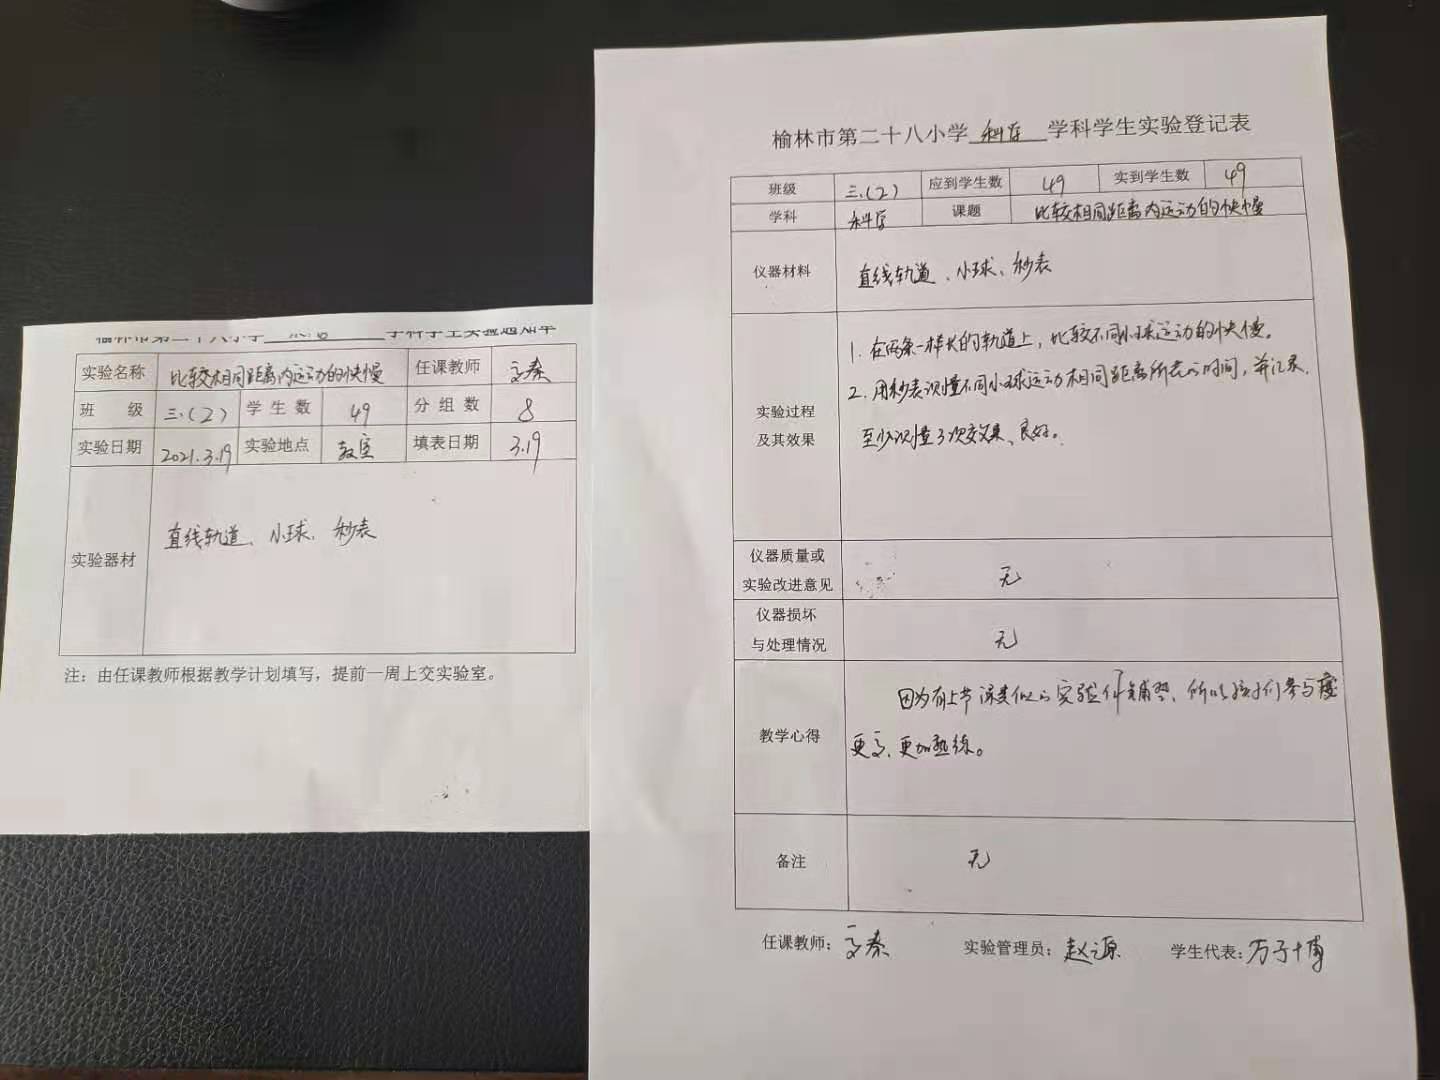 榆林市第二十八小学 科学 学科学生实验通知单
实验名称 比较相同距离内运动的快慢 任课教师
班 级 三.(2) 学生数 49 分组数 8
实验日期 2021.3.19 实验地点 教室 填表日期 3.19
实验器材 直线轨道、小球、秒表
注：由任课教师根据教学计划填写，提前一周上交实验室。
榆林市第二十八小学 科学 学科学生实验登记表
班级 三.(2) 应到学生数 49 实到学生数 49
学科 科学 课题 比较相同距离内运动的快慢
仪器材料 直线轨道、小球、秒表
实验过程
及其效果
1. 在两条一样长的轨道上，比较不同小球运动的快慢。
2. 用秒表测量不同小球运动相同距离所花的时间，并记录.
至少测量3次 效果、良好。
仪器质量或
实验改进意见
无
仪器损坏
与处理情况
无
教学心得
因为有上节课类似的实验作铺垫、所以孩子们参与度
更高、更加熟练。
备注 无
任课教师： 实验管理员：赵源 学生代表：万子博